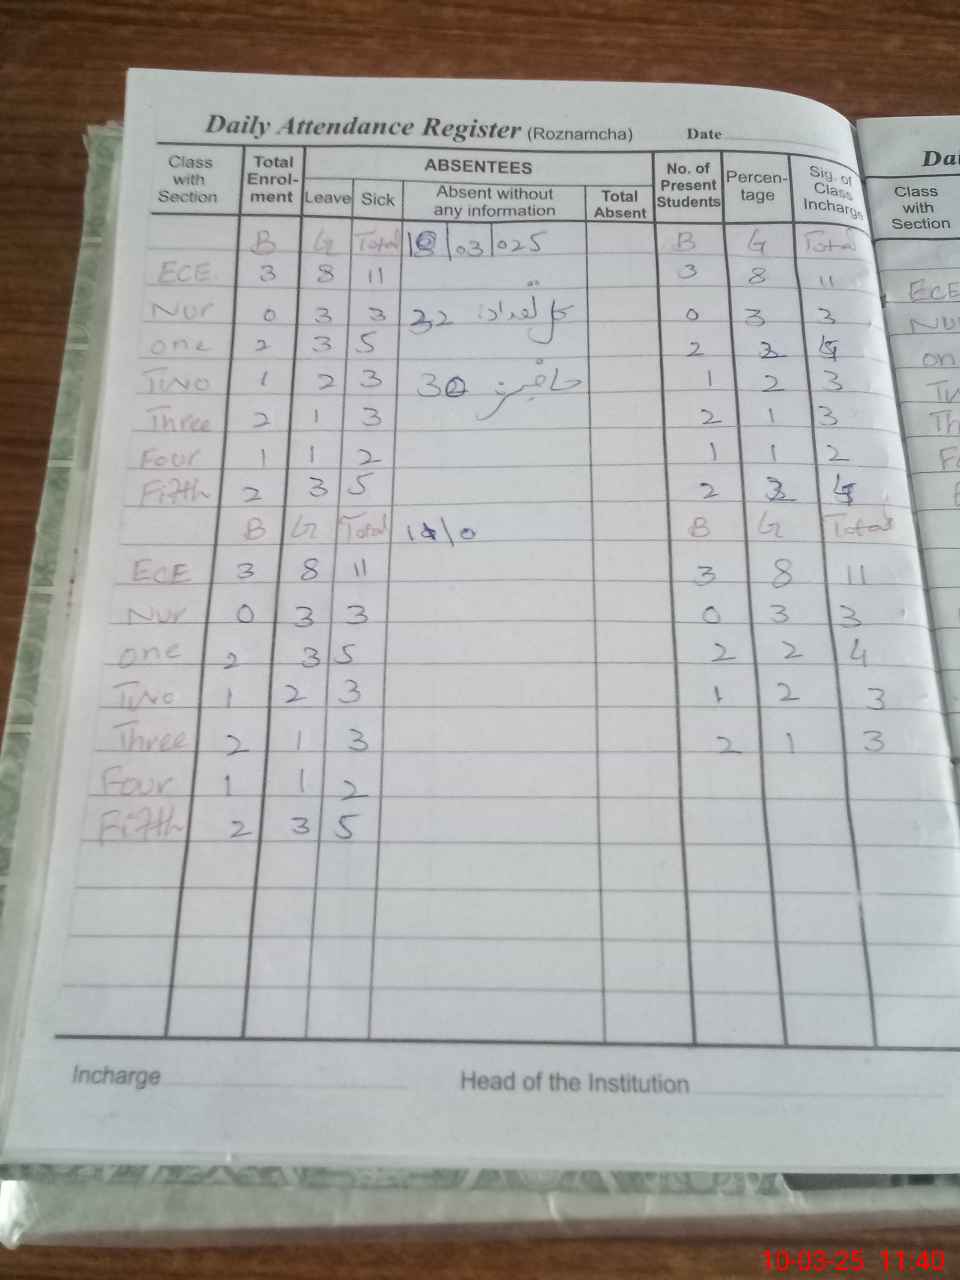 Daily Attendance Register (Roznamcha) Date
Class with Section Total Enrol-ment ABSENTEES No. of Present Students Percen-tage Sig. of Class Incharge
Leave Sick Absent without any information Total Absent
B G Total 03 025 B G Total
ECE 3 8 11 3 8 11
Nur 0 3 3 کل تعداد: 32 0 3 3
one 2 3 5 2
Two 1 2 3 حاضر 30 1 2 3
Three 2 1 3 2 1 3
Four 1 1 2 1 1 2
Fifth 2 3 5 2
B G Total B G Total
ECE 3 8 11 3 8 11
Nur 0 3 3 0 3 3
one 2 3 5 2 2 4
Two 1 2 3 1 2 3
Three 2 1 3 2 1 3
Four 1 1 2
Fifth 2 3 5
Incharge Head of the Institution
Class with Section
ECE
10-03-25 11:40